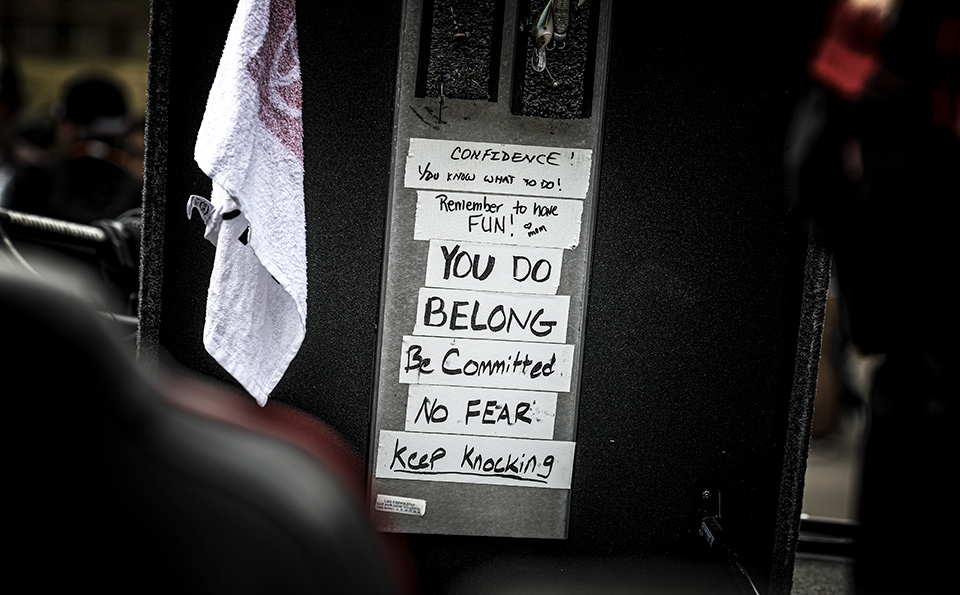 CONFIDENCE !
YOU KNOW WHAT TO DO!
Remember to have
FUN! ♡mom
YOU DO
BELONG
Be Committed
NO FEAR
Keep Knocking